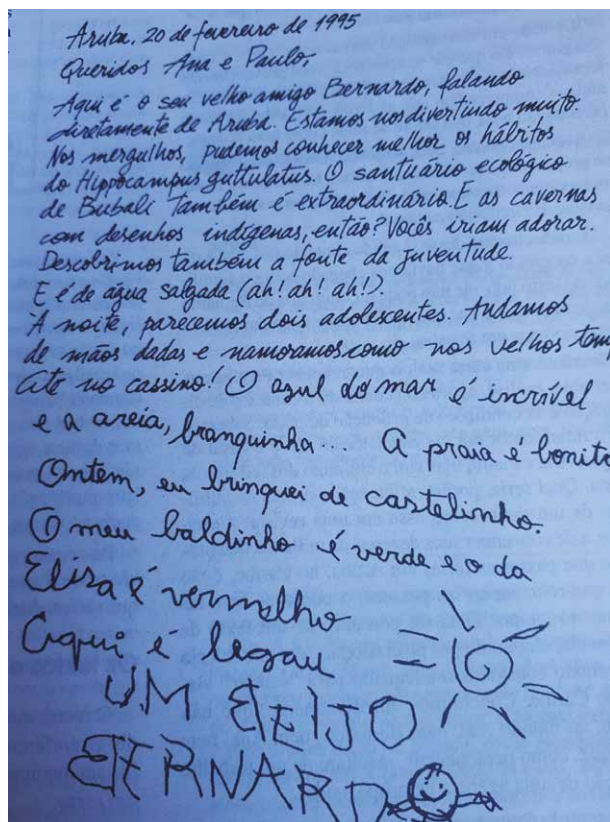 Aruba, 20 de fevereiro de 1995
Queridos Ana e Paulo,
Aqui é o seu velho amigo Bernardo, falando
diretamente de Aruba. Estamos nos divertindo muito.
Nos mergulhos, pudemos conhecer melhor os hábitos
do Hippocampus guttulatus. O santuário ecológico
de Bubali também é extraordinário. E as cavernas
com desenhos indígenas, então? Vocês iriam adorar.
Descobrimos também a fonte da juventude.
E é de água salgada (ah! ah! ah!).
À noite, parecemos dois adolescentes. Andamos
de mãos dadas e namoramos como nos velhos temp
Até no cassino! O azul do mar é incrível
e a areia, branquinha... A praia é bonita
Ontem, eu brinquei de castelinho.
O meu baldinho é verde e o da
Elisa é vermelho
Aqui é legau
UM BEIJO
BERNARDO